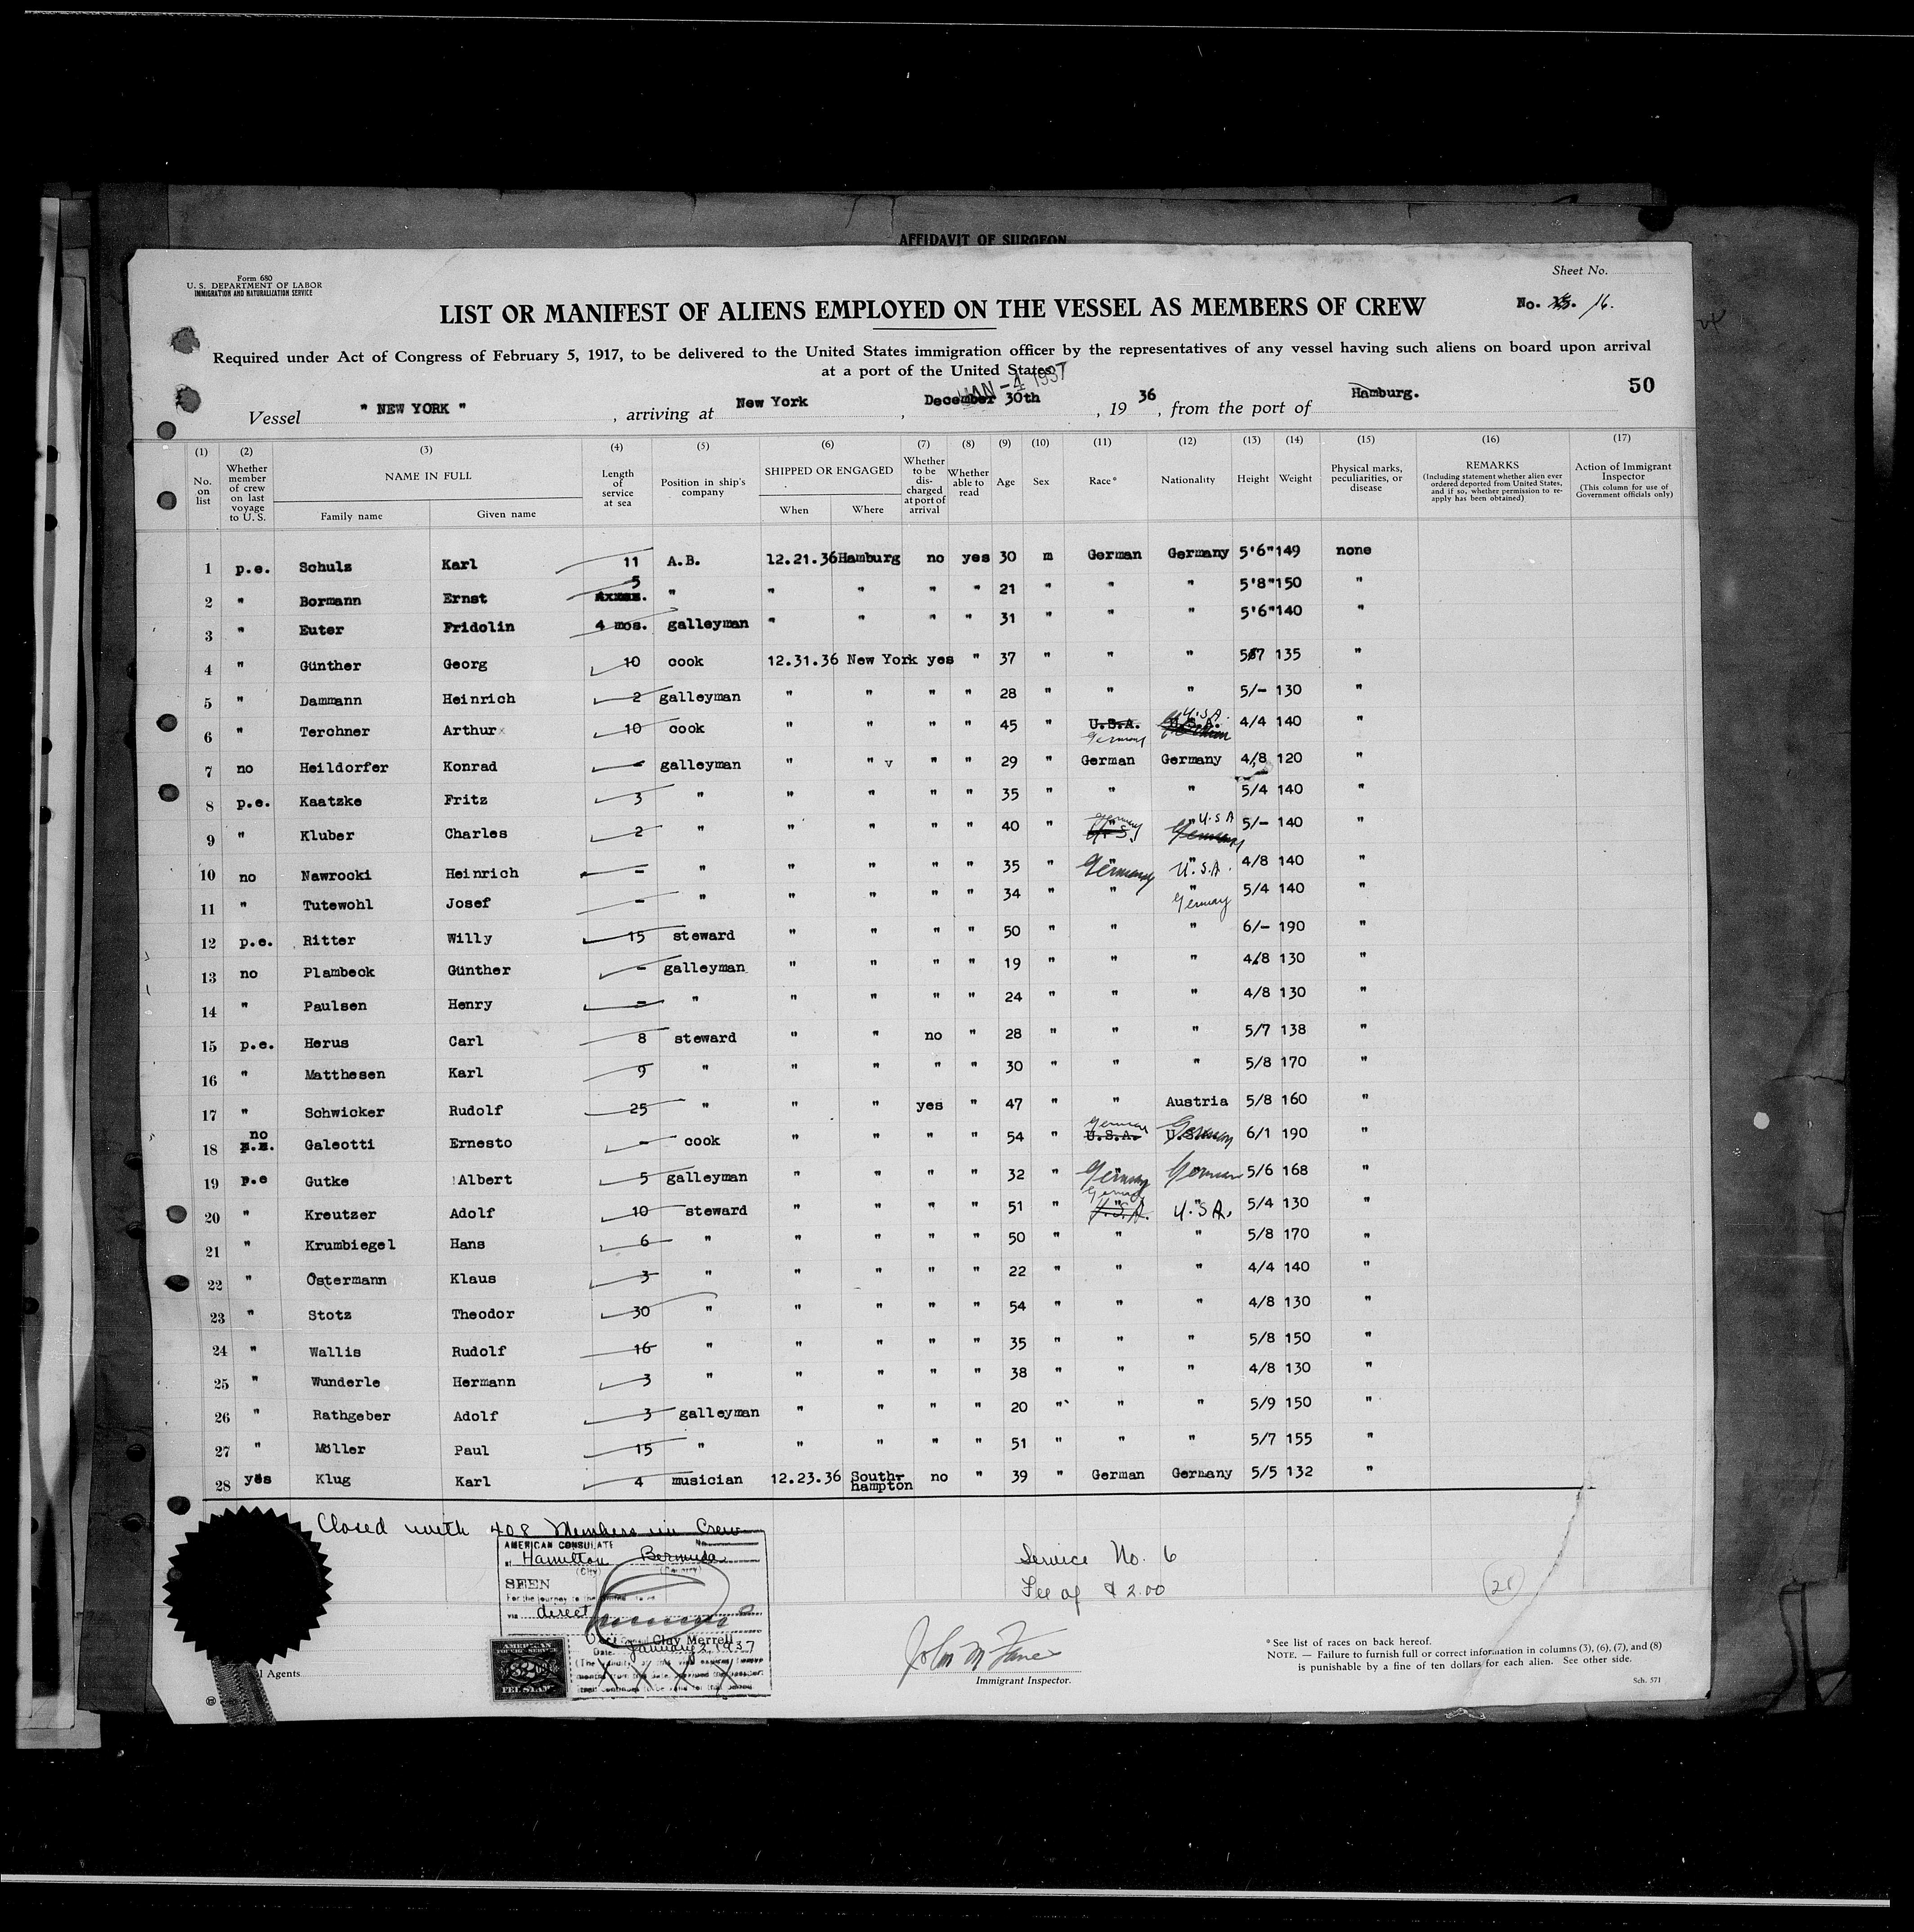 AFFIDAVIT OF SURGEON
Form 680
U. S. DEPARTMENT OF LABOR
IMMIGRATION AND NATURALIZATION SERVICE
Sheet No.
LIST OR MANIFEST OF ALIENS EMPLOYED ON THE VESSEL AS MEMBERS OF CREW
No. 16.
Required under Act of Congress of February 5, 1917, to be delivered to the United States immigration officer by the representatives of any vessel having such aliens on board upon arrival
at a port of the United States
JAN -4 1937
50
Vessel " NEW YORK " , arriving at New York , December 30th , 19 36 , from the port of Hamburg.
(1) (2) (3) (4) (5) (6) (7) (8) (9) (10) (11) (12) (13) (14) (15) (16) (17)
No. on list
Whether member of crew on last voyage to U. S.
NAME IN FULL
Family name
Given name
Length of service at sea
Position in ship's company
SHIPPED OR ENGAGED
When
Where
Whether to be discharged at port of arrival
Whether able to read
Age
Sex
Race*
Nationality
Height
Weight
Physical marks, peculiarities, or disease
REMARKS
(Including statement whether alien ever ordered deported from United States, and if so, whether permission to re-apply has been obtained)
Action of Immigrant Inspector
(This column for use of Government officials only)
1 p.e. Schulz Karl 11 A.B. 12.21.36 Hamburg no yes 30 m German Germany 5'6" 149 none
2 " Bormann Ernst 5 " " " " " 21 " " " 5'8" 150 "
3 " Euter Fridolin 4 mos. galleyman " " " " 31 " " " 5'6" 140 "
4 " Günther Georg 10 cook 12.31.36 New York yes " 37 " " " 5/7 135 "
5 " Dammann Heinrich 2 galleyman " " " " 28 " " " 5/- 130 "
6 " Terchner Arthur 10 cook " " " " 45 " U.S.A. Germany U.S.A. 4/4 140 "
7 no Heildorfer Konrad - galleyman " " v " " 29 " German Germany 4/8 120 "
8 p.e. Kaatzke Fritz 3 " " " " " 35 " " " 5/4 140 "
9 " Kluber Charles 2 " " " " " 40 " U.S. Germany Germany U.S.A 5/- 140 "
10 no Nawrocki Heinrich - " " " " " 35 " Germany U.S.A. 4/8 140 "
11 " Tutewohl Josef - " " " " " 34 " " " Germany 5/4 140 "
12 p.e. Ritter Willy 15 steward " " " " 50 " " " 6/- 190 "
13 no Plambeck Günther - galleyman " " " " 19 " " " 4/8 130 "
14 " Paulsen Henry - " " " " " 24 " " " 4/8 130 "
15 p.e. Herus Carl 8 steward " " no " 28 " " " 5/7 138 "
16 " Matthesen Karl 9 " " " " " 30 " " " 5/8 170 "
17 " Schwicker Rudolf 25 " " " yes " 47 " " Austria 5/8 160 "
18 no Galeotti Ernesto - cook " " " " 54 " U.S.A. German U.S.A. German 6/1 190 "
19 p.e Gutke Albert 5 galleyman " " " " 32 " Germany German 5/6 168 "
20 " Kreutzer Adolf 10 steward " " " " 51 " U.S.A. German U.S.A. 5/4 130 "
21 " Krumbiegel Hans 6 " " " " " 50 " " " 5/8 170 "
22 " Ostermann Klaus 3 " " " " " 22 " " " 4/4 140 "
23 " Stotz Theodor 30 " " " " " 54 " " " 4/8 130 "
24 " Wallis Rudolf 16 " " " " " 35 " " " 5/8 150 "
25 " Wunderle Hermann 3 " " " " " 38 " " " 4/8 130 "
26 " Rathgeber Adolf 3 galleyman " " " " 20 " " " 5/9 150 "
27 " Möller Paul 15 " " " " " 51 " " " 5/7 155 "
28 yes Klug Karl 4 musician 12.23.36 South-hampton no " 39 " German Germany 5/5 132 "
Closed with 408 Members in Crew
AMERICAN CONSULATE
at Hamilton Bermuda
(City) (Country)
SEEN
For the journey to the United States
via direct
Clay Merrell
Date January 2 1937
AMERICAN
FEE STAMP
Service No. 6
Fee of $ 2.00
21
Immigrant Inspector.
Agents
* See list of races on back hereof.
NOTE. — Failure to furnish full or correct information in columns (3), (6), (7), and (8)
is punishable by a fine of ten dollars for each alien. See other side.
Sch. 571